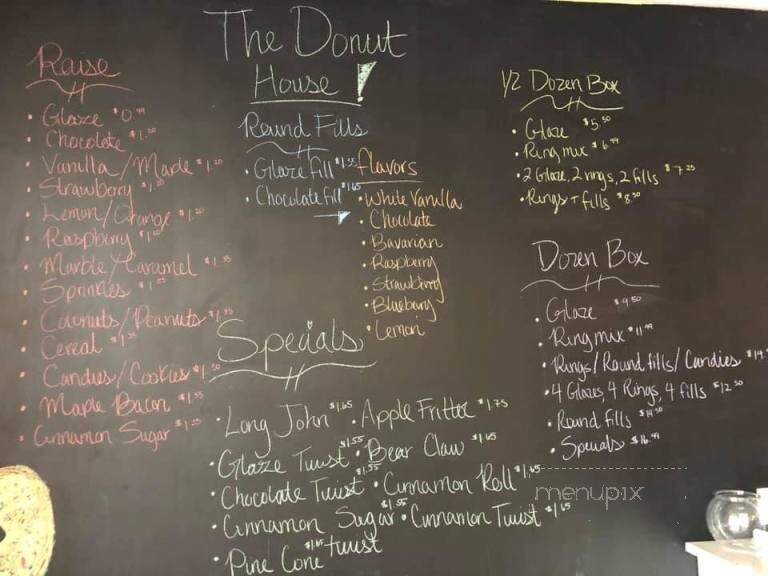 The Donut
House!
Raise
• Glaze $0.99
• Chocolate $1.20
• Vanilla/Maple $1.20
• Strawberry $1.20
• Lemon/Orange $1.20
• Raspberry
• Marble/Caramel
• Sprinkles
• Coconuts/Peanuts
• Cereal
• Candies/Cookies
• Maple Bacon
• Cinnamon Sugar
Round Fills
• Glaze fill
• Chocolate fill $1.65
flavors
• White Vanilla
• Chocolate
• Bavarian
• Raspberry
• Strawberry
• Blueberry
• Lemon
Specials
• Long John $1.65 • Apple Fritter $1.75
• Glaze Twist $1.55 • Bear Claw $1.65
• Chocolate Twist $1.55 • Cinnamon Roll $1.65
• Cinnamon Sugar $1.55 • Cinnamon Twist $1.65
• Pine Cone $1.65 twist
1/2 Dozen Box
• Glaze $5.50
• Ring mix $6.99
• 2 Glaze, 2 rings, 2 fills $7.25
• Rings + fills $8.50
Dozen Box
• Glaze $9.50
• Ring mix $11.99
• Rings/Round fills/Candies
• 4 Glazes, 4 Rings, 4 fills $12.50
• Round fills $14.50
• Specials $16.99
menupix